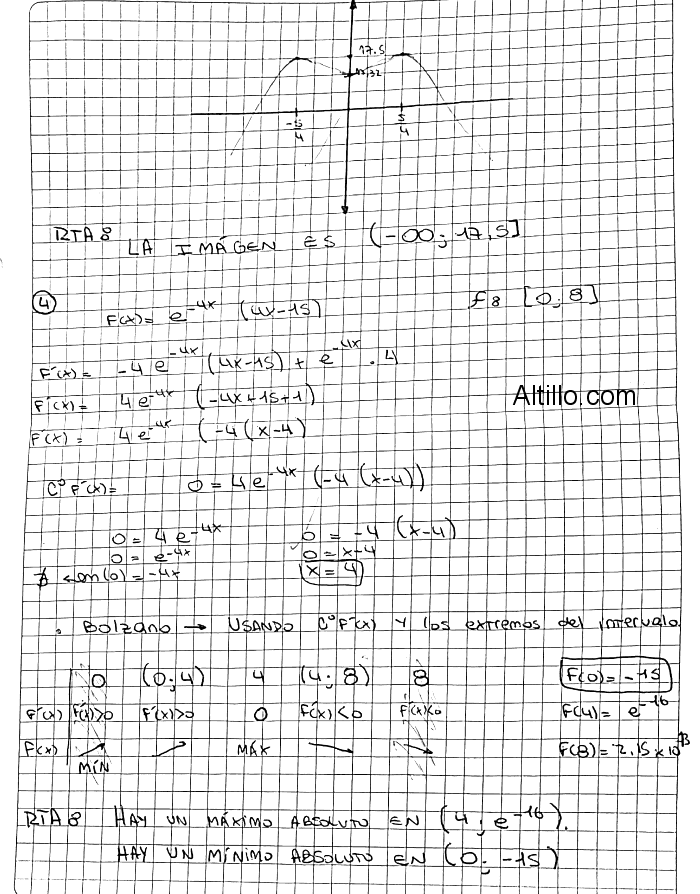 17.5
13,32
-5/4
5/4
RTA8 LA IMÁGEN ES (-∞; 17,5]
④ F(x) = e^-4x (4x-15) f8 [0; 8]
F'(x) = -4 e^-4x (4x-15) + e^-4x . 4
F'(x) = 4e^-4x (-4x+15+1)
Altillo.com
F'(x) = 4e^-4x (-4(x-4)
C° F'(x) = 0 = 4e^-4x (-4(x-4))
0 = 4 e^-4x 0 = -4 (x-4)
0 = e^-4x 0 = x-4
∄ Ln(0) = -4x x = 4
. Bolzano → USANDO C°F'(x) Y los extremos del intervalo
0 (0;4) 4 (4;8) 8 F(0) = -15
F'(x) F'(x)>0 F'(x)>0 0 F'(x)<0 F'(x)<0 F(4) = e^-16
F(x) MÁX F(8) = 2.15 x 10^-13
MÍN
RTA8 HAY UN MÁXIMO ABSOLUTO EN (4; e^-16).
HAY UN MÍNIMO ABSOLUTO EN (0; -15)